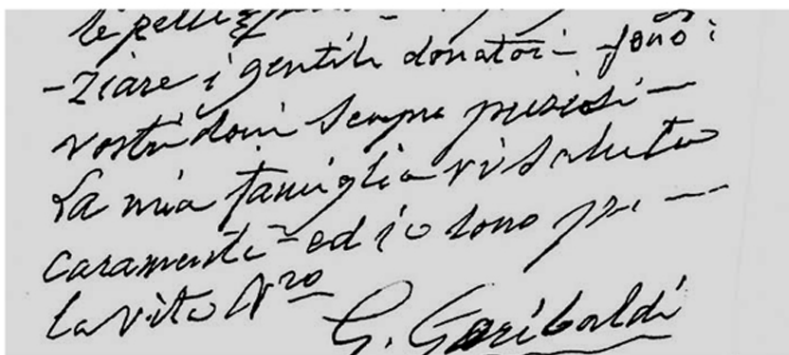 le pelli
-ziare i gentili donatori - sono i
vostri doni sempre preziosi -
La mia famiglia vi saluta
caramente - ed io sono per -
la vita Vro
G. Garibaldi